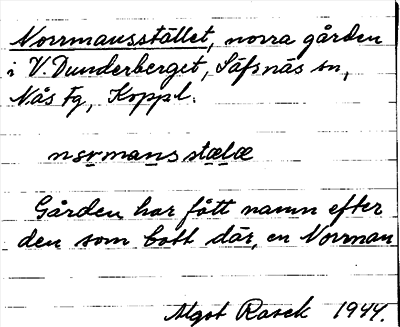 Norrmansstället, norra gården
i V. Dunderberget, Säfsnäs sn,
Nås Fg, Koppl.
normans stælæ
Gården har fått namn efter
den som bott där, en Norrman
Algot Rasck 1944.